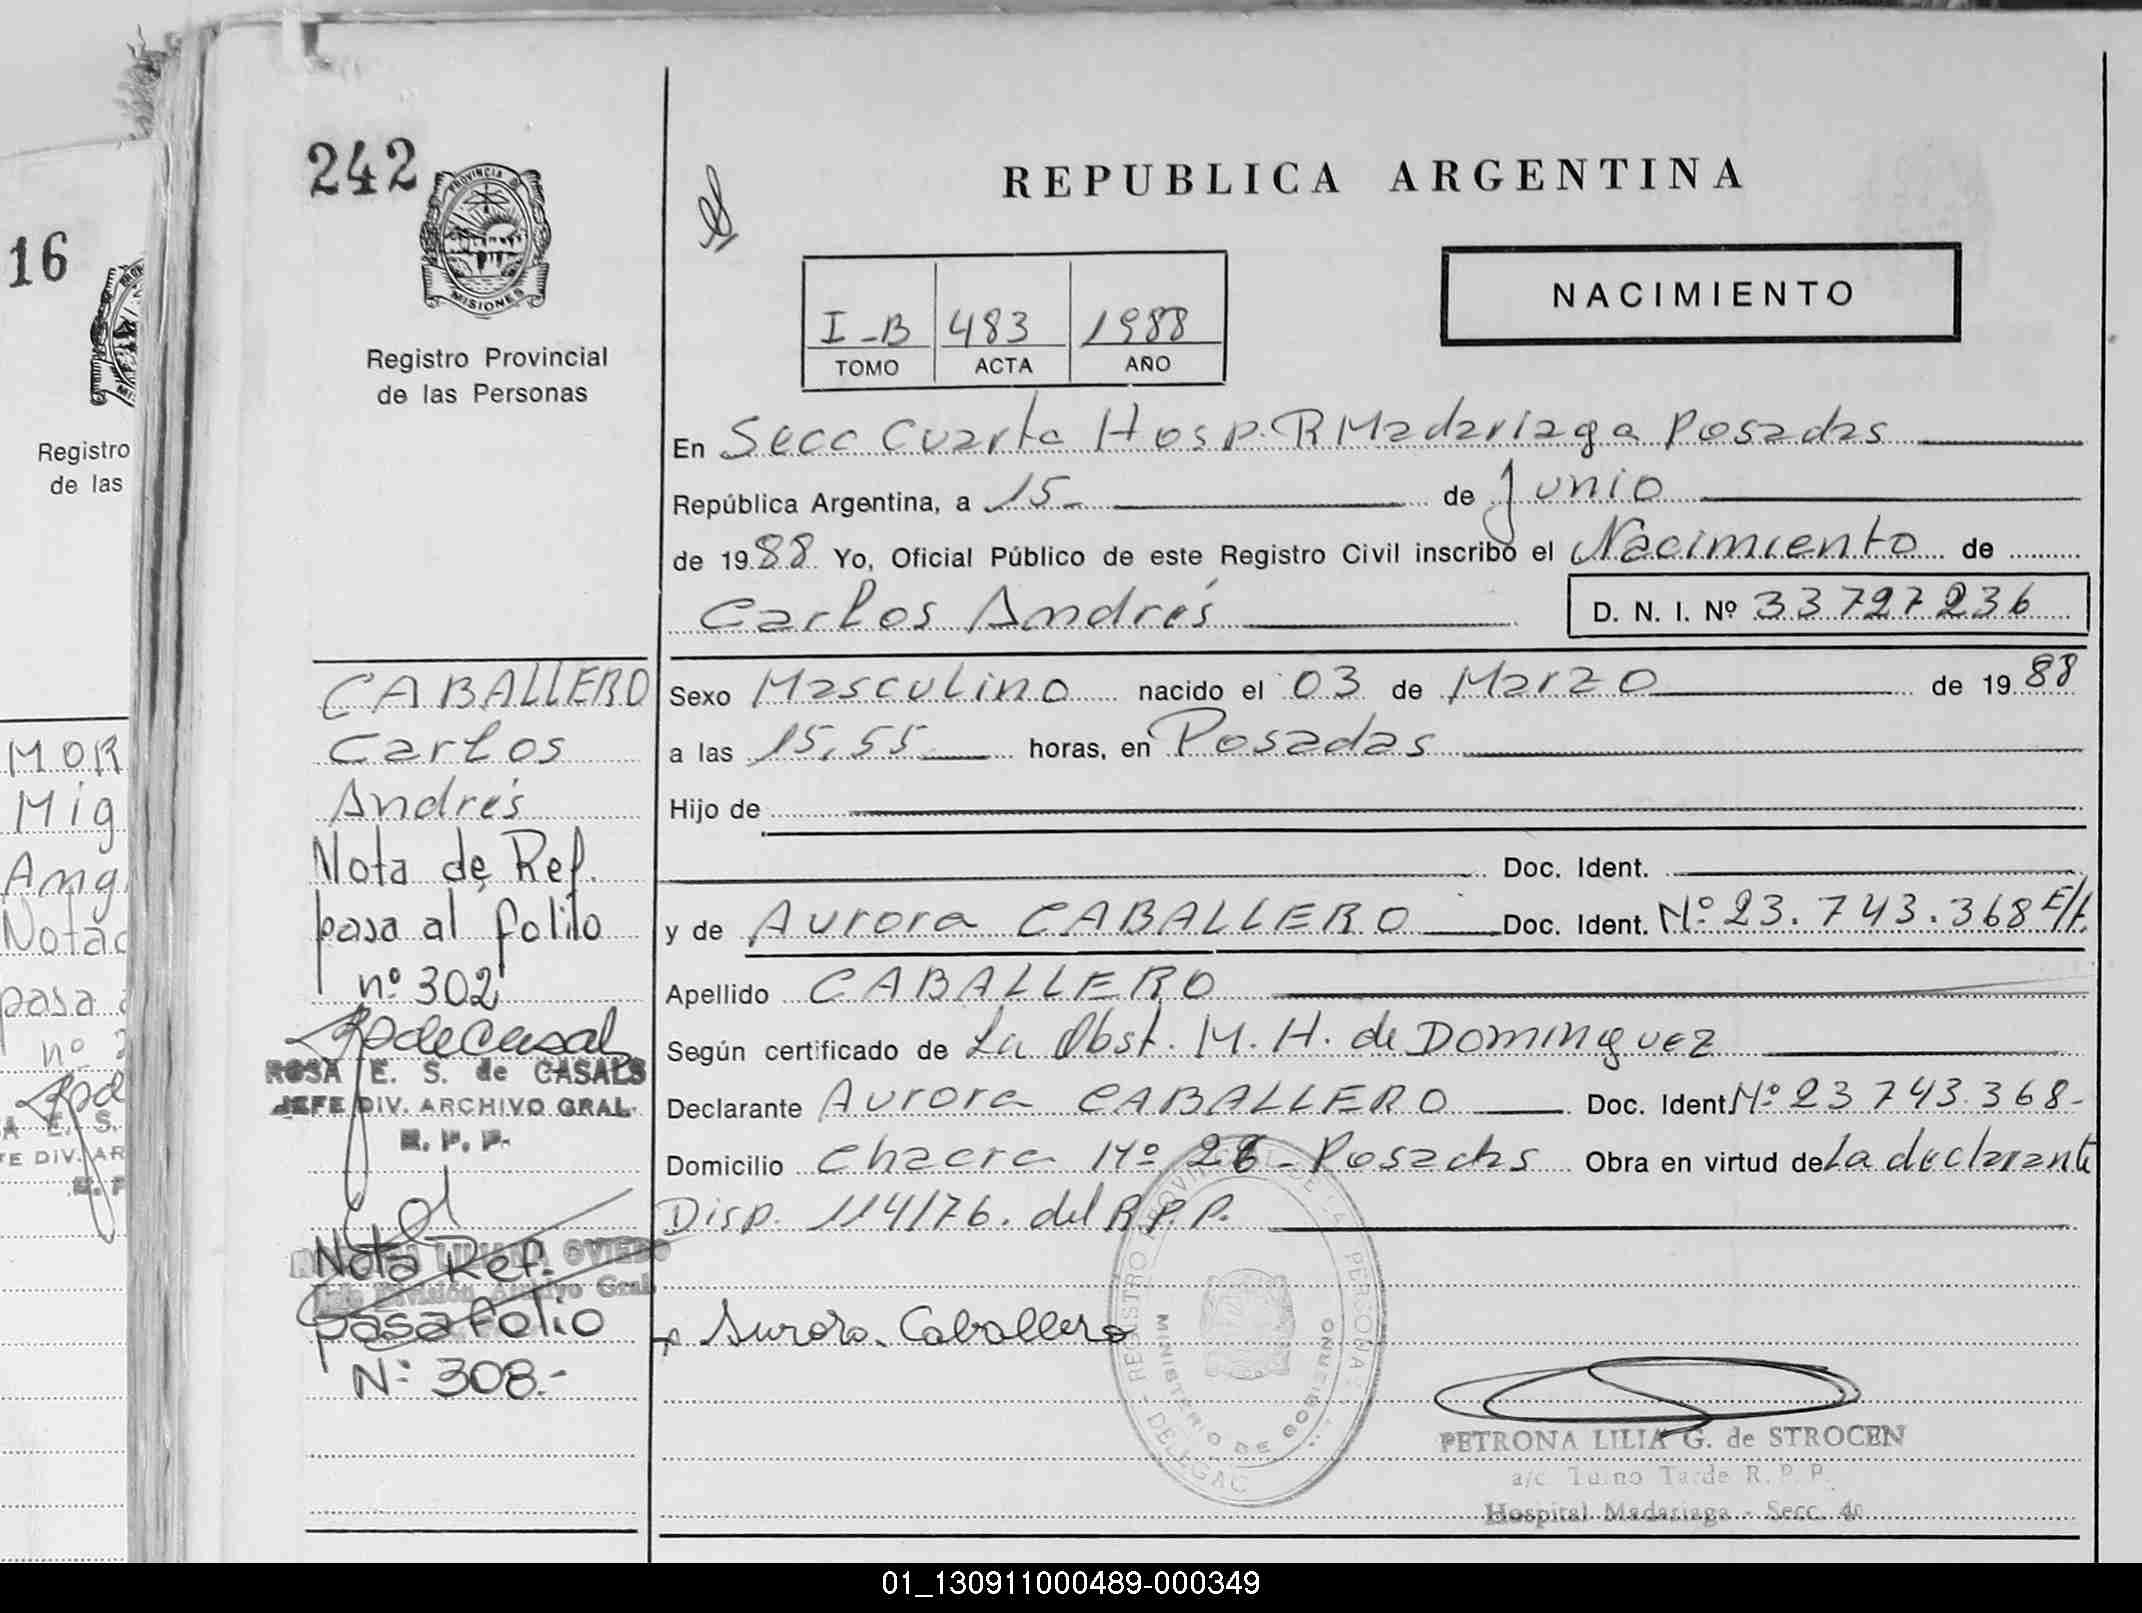 242
PROVINCIA DE
MISIONES
Registro Provincial
de las Personas
CABALLERO
Carlos
Andrés
Nota de Ref.
pasa al folilo
nº 302
ROSA E. S. de CASALS
JEFE DIV. ARCHIVO GRAL.
R. P. P.
Nota Ref.
pasa folio
Nº 308.-
REPUBLICA ARGENTINA
I-B 483 1988
TOMO ACTA AÑO
NACIMIENTO
En Secc Cuarta Hosp. R Madariaga Posadas
República Argentina, a 15- de Junio
de 1988 Yo, Oficial Público de este Registro Civil inscribo el Nacimiento de
Carlos Andrés D. N. I. Nº 33727236
Sexo Masculino nacido el 03 de Marzo de 1988
a las 15,55 horas, en Posadas
Hijo de
Doc. Ident.
y de Aurora CABALLERO Doc. Ident. Nº 23.743.368 E/t.
Apellido CABALLERO
Según certificado de La Obst. M. H. de Dominguez
Declarante Aurora CABALLERO Doc. Ident Nº 23743.368-
Domicilio Chacra Nº 28 - Posadas Obra en virtud de La declarante
Disp. 114/76. del R.P.P.
Aurora Caballero
REGISTRO PROVINCIAL DE LAS PERSONAS
MINISTERIO DE GOBIERNO
PETRONA LILIA G. de STROCEN
a/c Turno Tarde R. P. P.
Hospital Madariaga - Secc. 4a
16
Registro
de las
MOR
Mig
Ang
Nota
pasa
nº
E. S.
DIV. AR
01_130911000489-000349